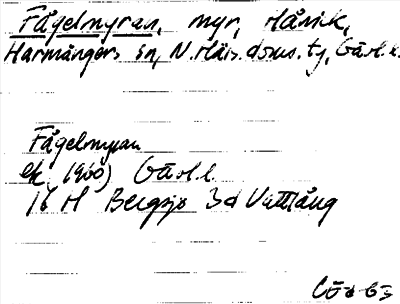 Fågelmyran, myr, Hånick,
Harmångers sn, N. Häls. doms. ty, Gävl. l.
Fågelmyran
ek (1960) Gävl. l.
16 H Bergsjö 3d Vattlång